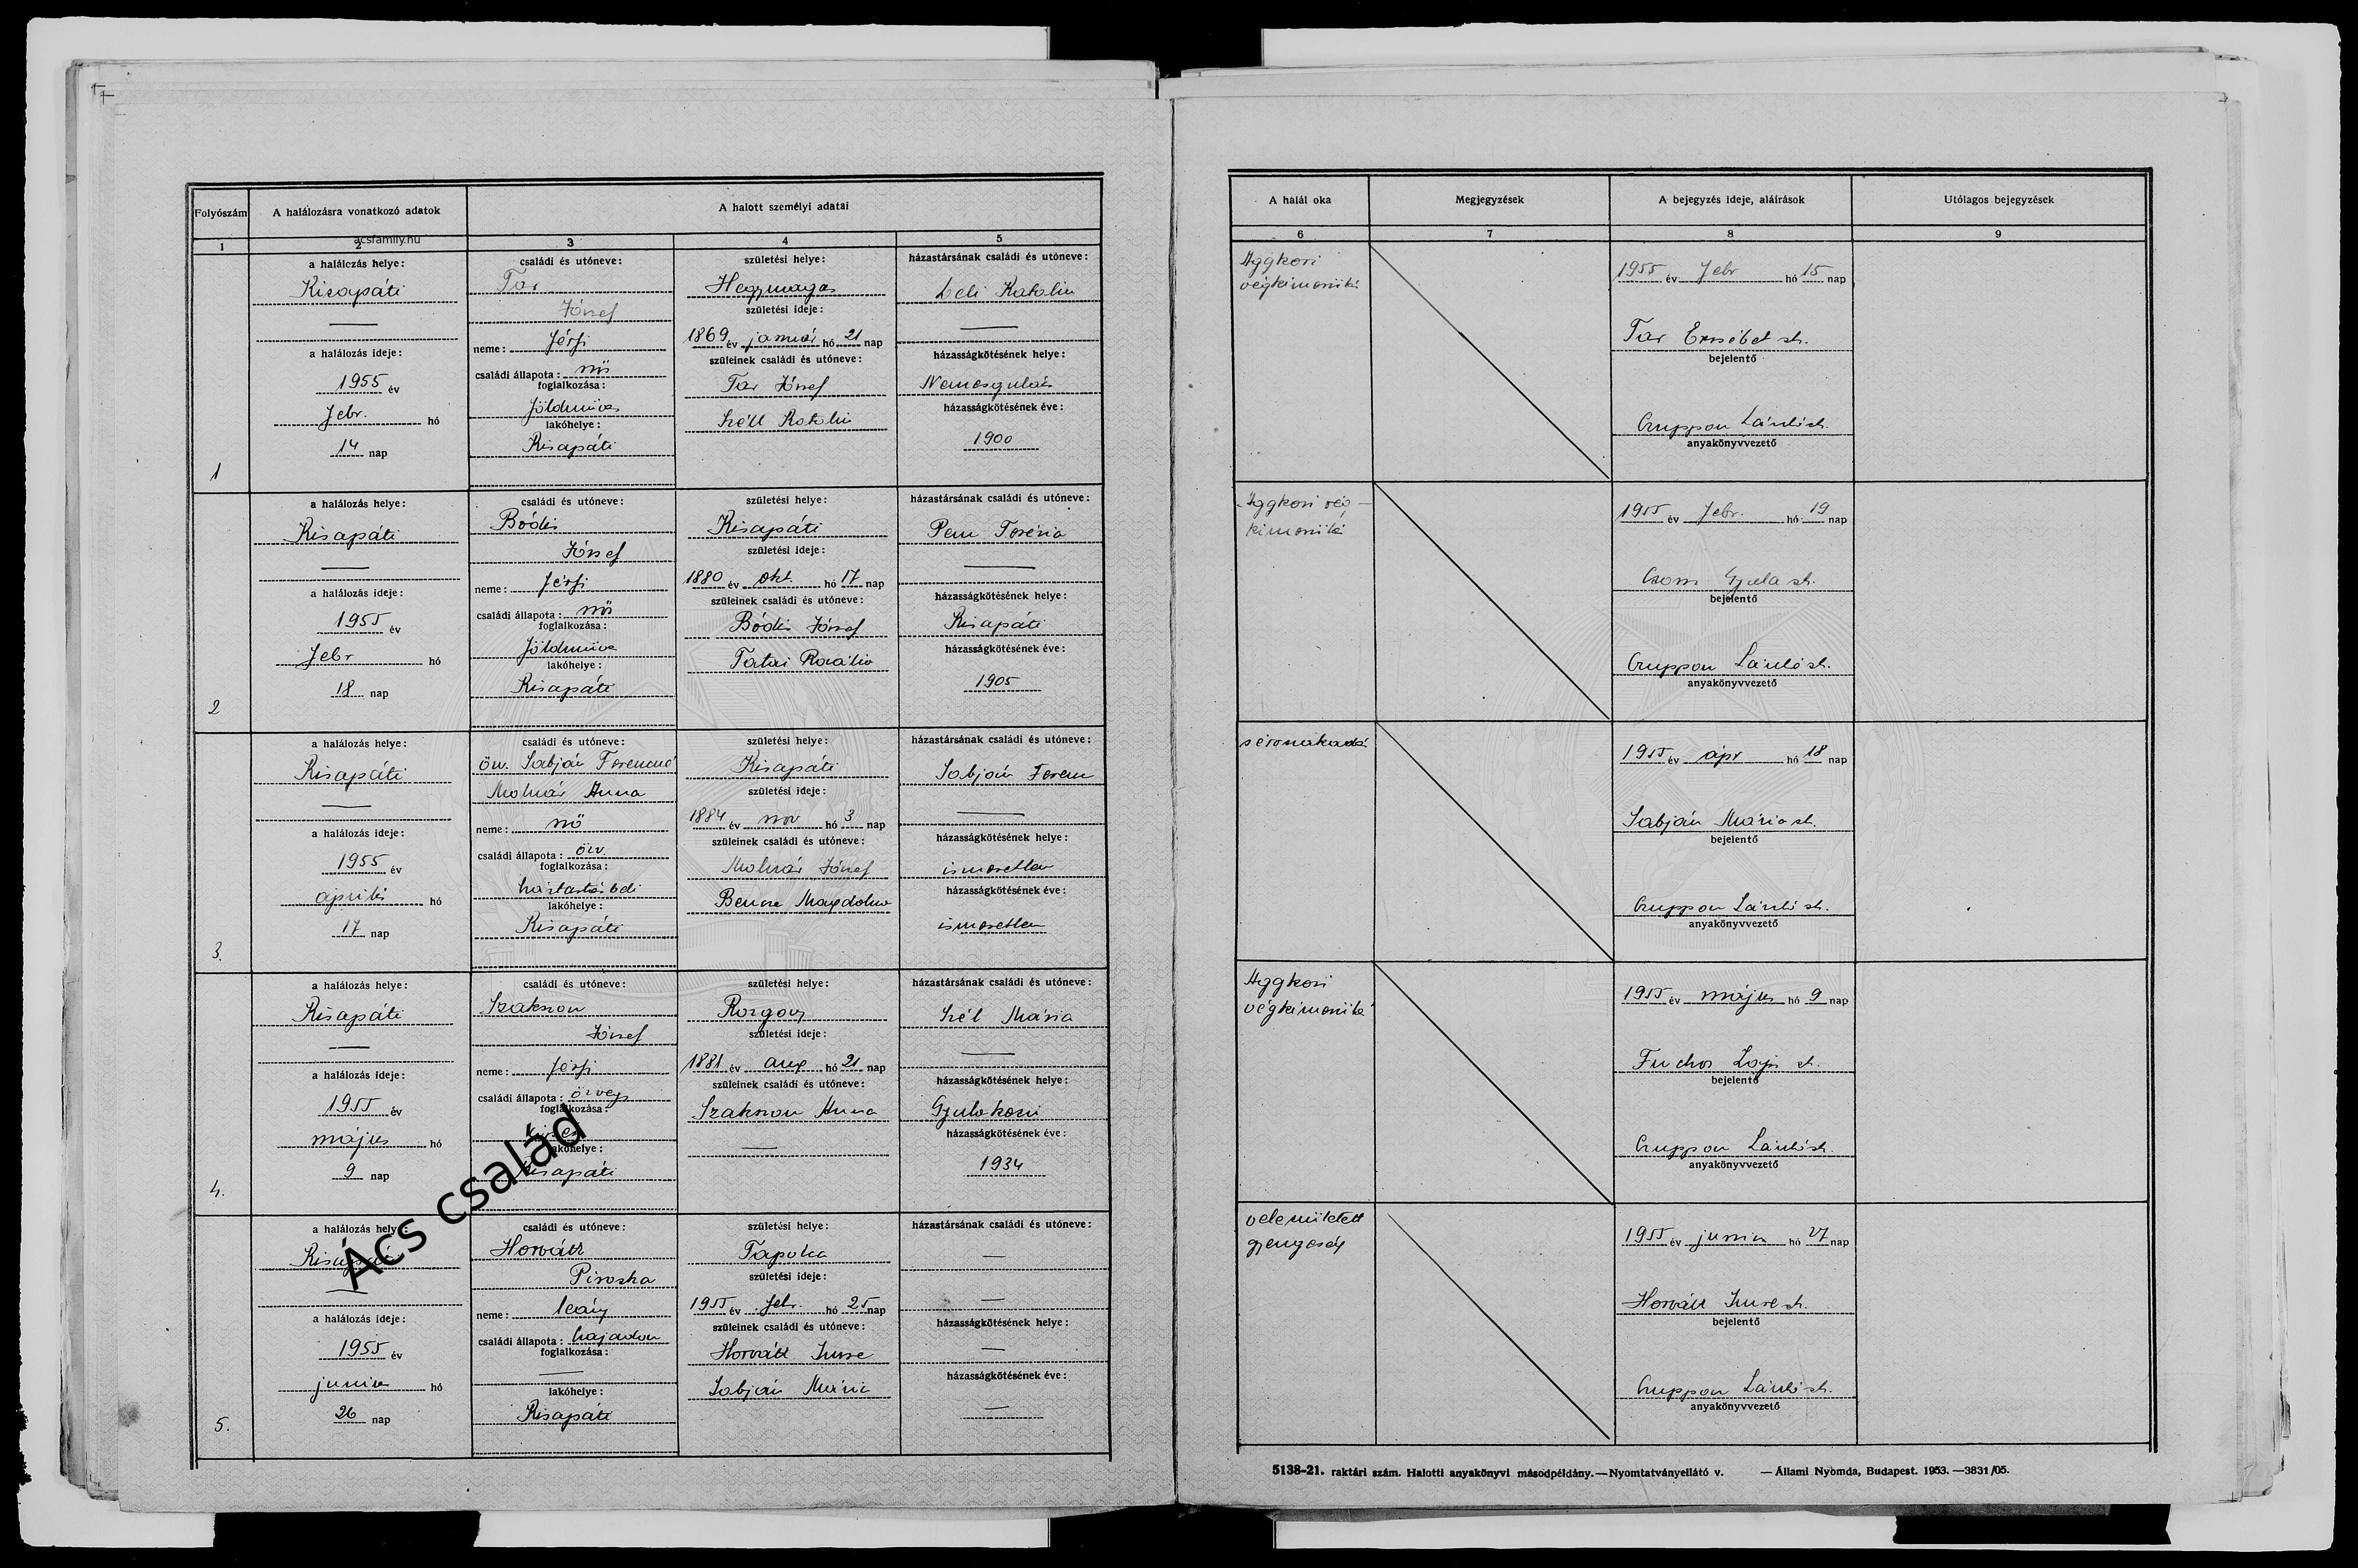 Folyószám
A halálozásra vonatkozó adatok
A halott személyi adatai
1
2
acsfamily.hu
3
4
5
a halálozás helye:
Kisapáti
—
a halálozás ideje:
1955 év
febr. hó
14 nap
1
családi és utóneve:
Tar
József
neme: férfi
családi állapota: nős
foglalkozása:
földműves
lakóhelye:
Kisapáti
születési helye:
Hegymagas
születési ideje:
1869 év január hó 21 nap
szüleinek családi és utóneve:
Tar József
Széll Katalin
házastársának családi és utóneve:
Katalin
—
házasságkötésének helye:
Nemesgulács
házasságkötésének éve:
1900
a halálozás helye:
Kisapáti
—
a halálozás ideje:
1955 év
febr hó
18 nap
2
családi és utóneve:
Bódis
József
neme: férfi
családi állapota: nős
foglalkozása:
földműves
lakóhelye:
Kisapáti
születési helye:
Kisapáti
születési ideje:
1880 év okt. hó 17 nap
szüleinek családi és utóneve:
Bódis József
Tatai Rozália
házastársának családi és utóneve:
Pem Terézia
—
házasságkötésének helye:
Kisapáti
házasságkötésének éve:
1905
a halálozás helye:
Kisapáti
—
a halálozás ideje:
1955 év
április hó
17 nap
3.
családi és utóneve:
özv. Sabján Ferencné
Molnár Anna
neme: nő
családi állapota: özv.
foglalkozása:
háztartásbeli
lakóhelye:
Kisapáti
születési helye:
Kisapáti
születési ideje:
1884 év nov hó 3 nap
szüleinek családi és utóneve:
Molnár József
Bence Magdolna
házastársának családi és utóneve:
Sabján Ferenc
—
házasságkötésének helye:
ismeretlen
házasságkötésének éve:
ismeretlen
a halálozás helye:
Kisapáti
—
a halálozás ideje:
1955 év
május hó
9 nap
4.
családi és utóneve:
Szakson
József
neme: férfi
családi állapota: özvegy
foglalkozása:
lakóhelye:
Kisapáti
születési helye:
születési ideje:
1881 év aug hó 21 nap
szüleinek családi és utóneve:
Szakson Anna
—
házastársának családi és utóneve:
Szél Mária
—
házasságkötésének helye:
Gyulakeszi
házasságkötésének éve:
1934
a halálozás helye:
Kisapáti
—
a halálozás ideje:
1955 év
junius hó
26 nap
5.
családi és utóneve:
Horváth
Piroska
neme: leány
családi állapota: hajadon
foglalkozása:
—
lakóhelye:
Kisapáti
születési helye:
Tapolca
születési ideje:
1955 év febr. hó 25 nap
szüleinek családi és utóneve:
Horváth Imre
Sabján Mária
házastársának családi és utóneve:
—
—
házasságkötésének helye:
—
házasságkötésének éve:
—
Ács család
A halál oka
Megjegyzések
A bejegyzés ideje, aláírások
Utólagos bejegyzések
6
7
8
9
Aggkori
végkimerülés
1955 év febr hó 15 nap
Tar Erzsébet sk.
bejelentő
Czuppon László sk.
anyakönyvvezető
Aggkori vég-
kimerülés
1955 év febr. hó 19 nap
Gyula sk.
bejelentő
Czuppon László sk.
anyakönyvvezető
1955 év ápr hó 18 nap
Sabján Mária sk.
bejelentő
Czuppon László sk.
anyakönyvvezető
Aggkori
végkimerülés
1955 év május hó 9 nap
Fuchs Lajos sk.
bejelentő
Czuppon László sk.
anyakönyvvezető
veleszületett
gyengeség
1955 év junius hó 27 nap
Horváth Imre sk.
bejelentő
Czuppon László sk.
anyakönyvvezető
5138-21. raktári szám. Halotti anyakönyvi másodpéldány.—Nyomtatványellátó v. —Állami Nyomda, Budapest. 1953.—3831/05.